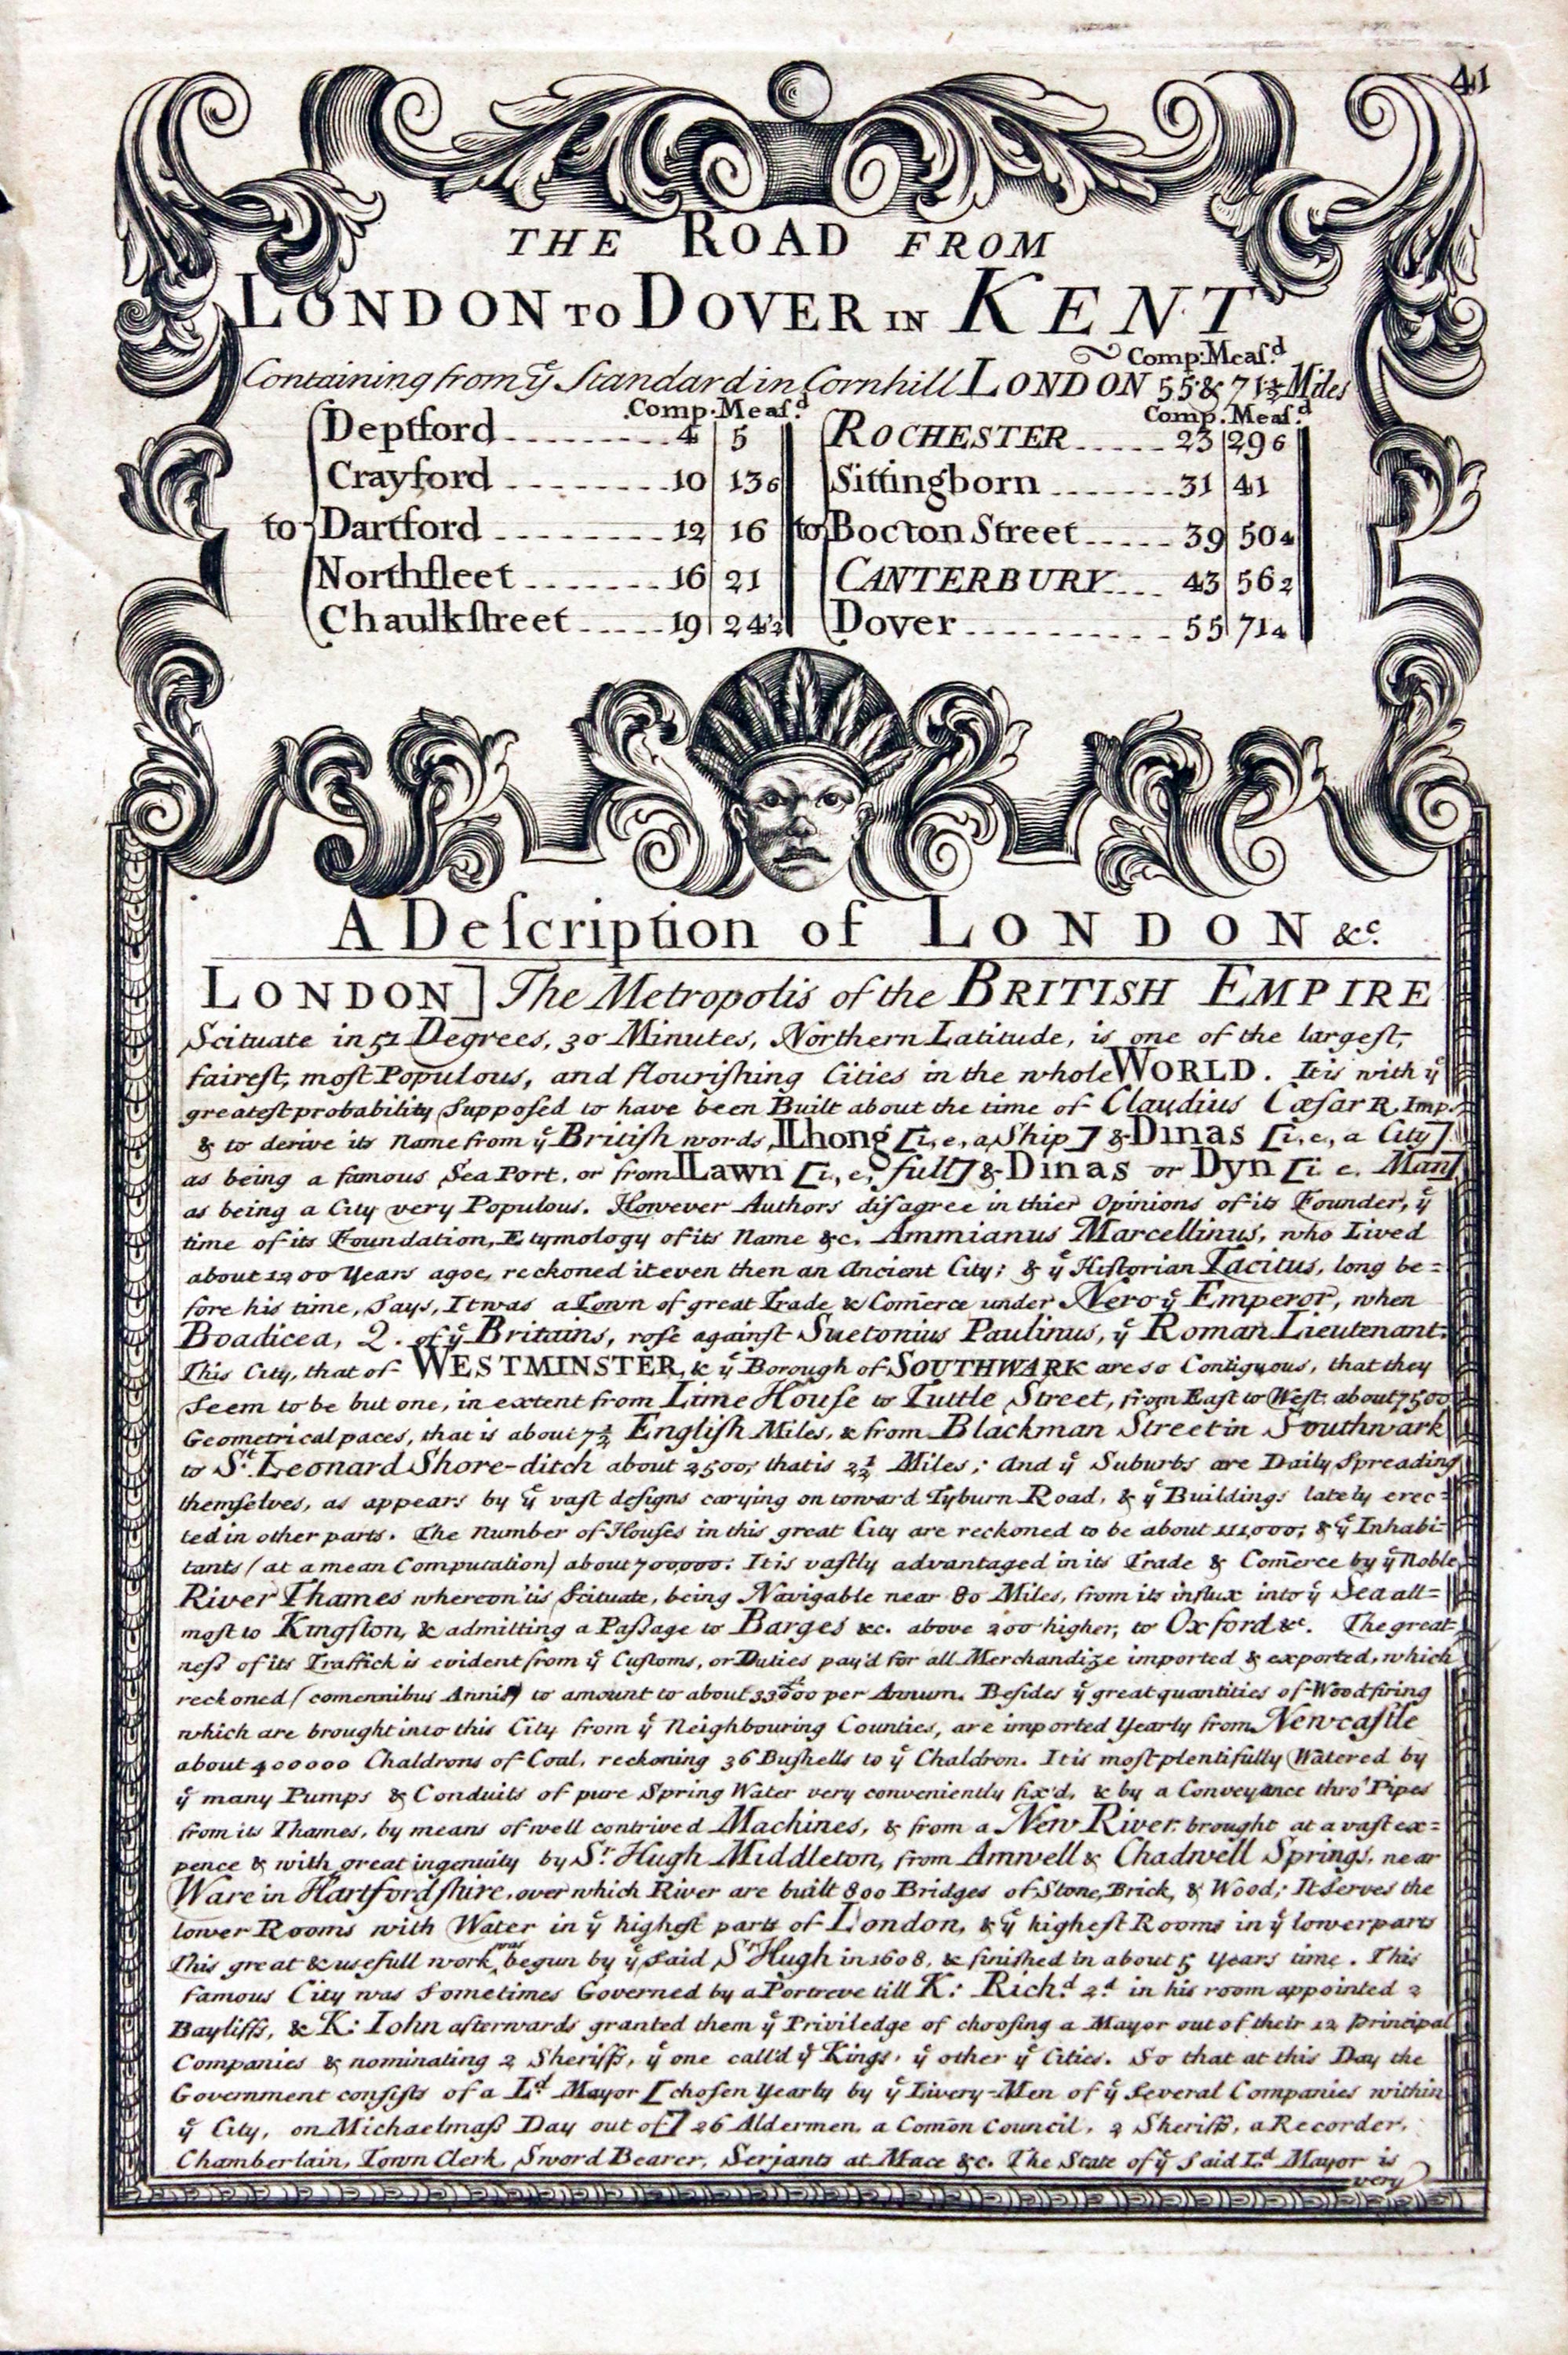 41
THE ROAD FROM
LONDON TO DOVER IN KENT
Comp: Meaſ.d
Containing from ẙ Standard in Cornhill LONDON 55 & 71½ Miles
Comp. Meaſ.d
Deptford 4 5
Crayford 10 13 6
to Dartford 12 16
Northfleet 16 21
Chaulkſtreet 19 24½
Comp. Meaſ.d
ROCHESTER 23 29 6
Sittingborn 31 41
to Bocton Street 39 50 4
CANTERBURY 43 56 2
Dover 55 71 4
A Deſcription of LONDON &c.
LONDON] The Metropolis of the BRITISH EMPIRE
Scituate in 51 Degrees, 30 Minutes, Northern Latitude, is one of the largeſt,
faireſt, moſt Populous, and flouriſhing Cities in the whole WORLD. It is with ẙ
greateſt probability Suppoſed to have been Built about the time of Claudius Cæſar R. Imp.
& to derive its Name from ẙ Britiſh words, LLhong [i, e, a Ship] & Dinas [i, e, a City]
as being a famous Sea Port, or from LLawn [i, e, full] & Dinas or Dyn [i e. Man]
as being a City very Populous. However Authors diſagree in thier Opinions of its Founder, ẙ
time of its Foundation, Etymology of its Name &c. Ammianus Marcellinus, who Lived
about 1200 Years agoe, reckoned it even then an Ancient City; & ẙ Hiſtorian Tacitus, long be=
fore his time, Says, It was a Town of great Trade & Com̄erce under Nero ẙ Emperor, when
Boadicea, Q. of ẙ Britains, roſe against Suetonius Paulinus, ẙ Roman Lieutenant.
This City, that of WESTMINSTER, & ẙ Borough of SOUTHWARK are so Contiguous, that they
Seem to be but one, in extent from Lime Houſe to Tuttle Street, from East to West about 7500
Geometrical paces, that is about 7½ Engliſh Miles, & from Blackman Street in Southwark
to St. Leonard Shore-ditch about 2500; that is 2½ Miles; And ẙ Suburbs are Daily Spreading
themſelves, as appears by ẙ vaſt deſigns carying on toward Tyburn Road, & ẙ Buildings lately erec=
ted in other parts. The Number of Houſes in this great City are reckoned to be about 111,000; & ẙ Inhabi=
tants (at a mean Computation) about 700,000: It is vaſtly advantaged in its Trade & Com̄erce by ẙ Noble
River Thames whereon 'tis Scituate, being Navigable near 80 Miles, from its influx into ẙ Sea all=
moſt to Kingſton, & admitting a Paſſage to Barges &c. above 200 higher, to Oxford &c. The great-
neſs of its Traffick is evident from ẙ Cuſtoms, or Duties pay'd for all Merchandize imported & exported, which
reckoned (comennibus Annis) to amount to about per Annum. Beſides ẙ great quantities of Wood firing
which are brought into this City from ẙ Neighbouring Counties, are imported Yearly from Newcaſtle
about 400000 Chaldrons of Coal, reckoning 36 Buſhells to ẙ Chaldron. It is moſt plentifully Watered by
ẙ many Pumps & Conduits of pure Spring Water very conveniently fix'd, & by a Conveyance thro' Pipes
from its Thames, by means of well contrived Machines, & from a New River brought at a vaſt ex=
pence & with great ingenuity by Sr. Hugh Middleton, from Amwell & Chadwell Springs, near
Ware in Hartfordſhire, over which River are built 800 Bridges of Stone, Brick, & Wood; It Serves the
lower Rooms with Water in ẙ higheſt parts of London, & ẙ higheſt Rooms in ẙ lower parts
This great & usefull work was begun by ẙ Said Sr Hugh in 1608, & finiſhed in about 5 Years time. This
famous City was Sometimes Governed by a Portreve till K: Rich.d 2.d in his room appointed 2
Bayliffs, & K: Iohn afterwards granted them ẙ Priviledge of chooſing a Mayor out of their 12 Principal
Companies & nominating 2 Sheriffs, ẙ one call'd ẙ Kings, ẙ other ẙ Cities. So that at this Day the
Government conſiſts of a Ld. Mayor [choſen Yearly by ẙ Livery-Men of ẙ Several Companies within
ẙ City, on Michaelmaſs Day out of] 26 Aldermen, a Com̄on Council, 2 Sheriffs, a Recorder,
Chamberlain, Town Clerk, Sword Bearer, Serjants at Mace &c. The State of ẙ Said Ld. Mayor is
very